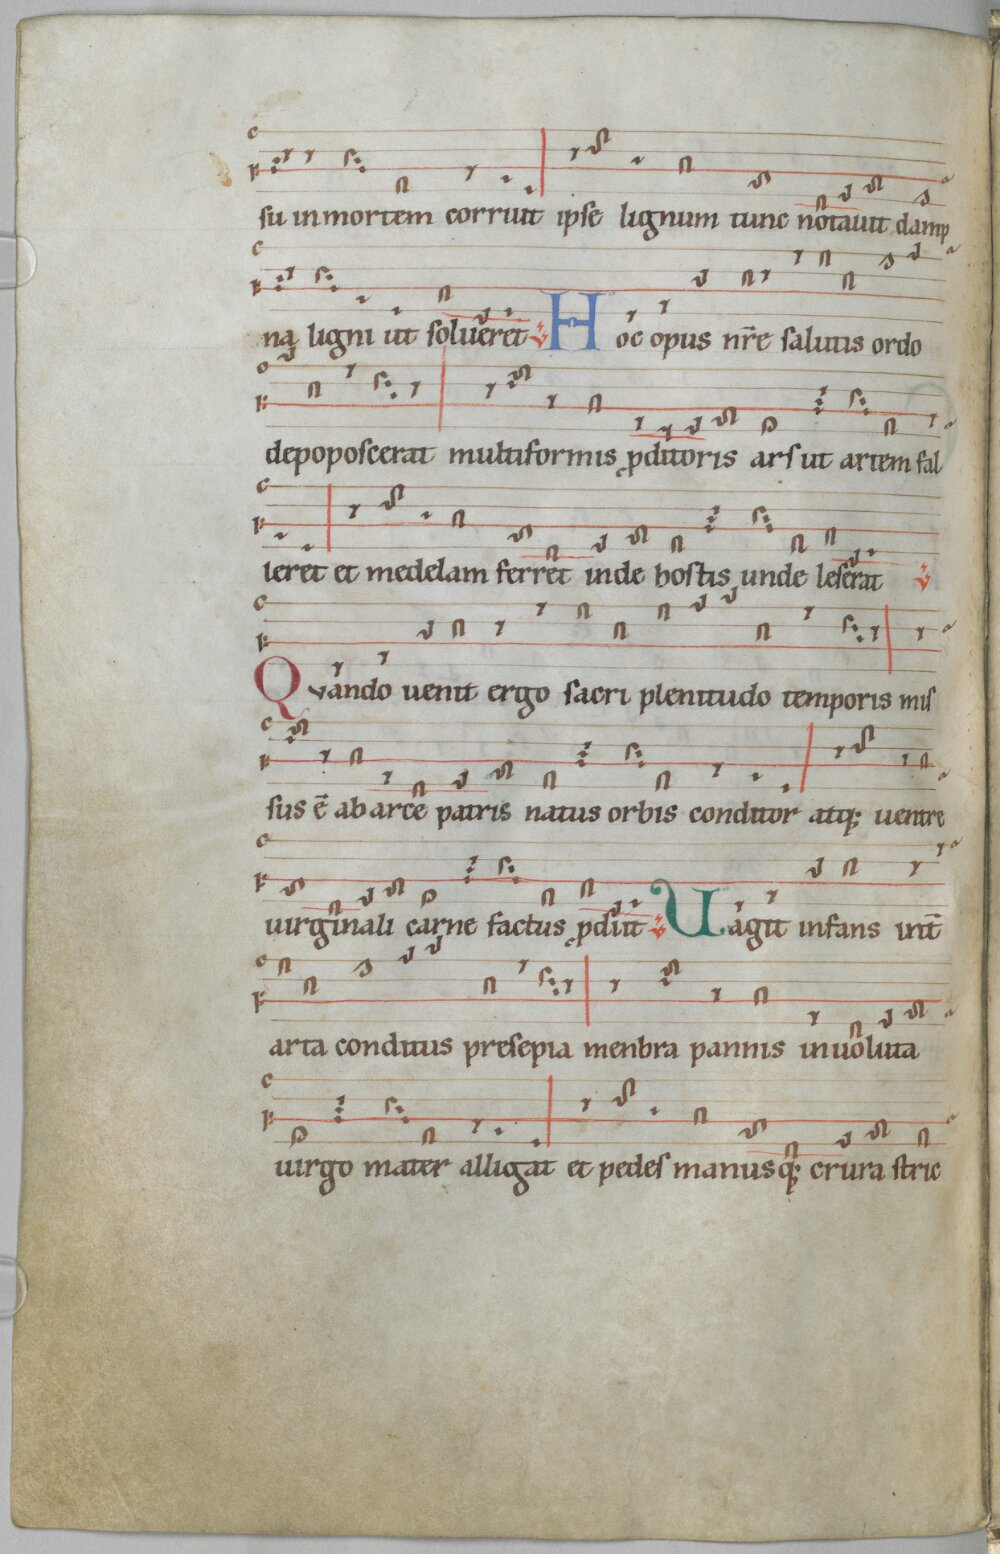 su in mortem corruit ipse lignum tunc notauit damp
ną ligni ut solueret Hoc opus nr̄e salutis ordo
depoposcerat multiformis ꝓditoris ars ut artem fal
leret et medelam ferret inde hostis unde leserat
Quando uenit ergo sacri plenitudo temporis mis
sus ē ab arce patris natus orbis conditor atq; uentre
uirginali carne factus ꝓdiit Uagit infans int̄
arta conditus presepia menbra pannis inuoluta
uirgo mater alligat et pedes manusq; crura stric